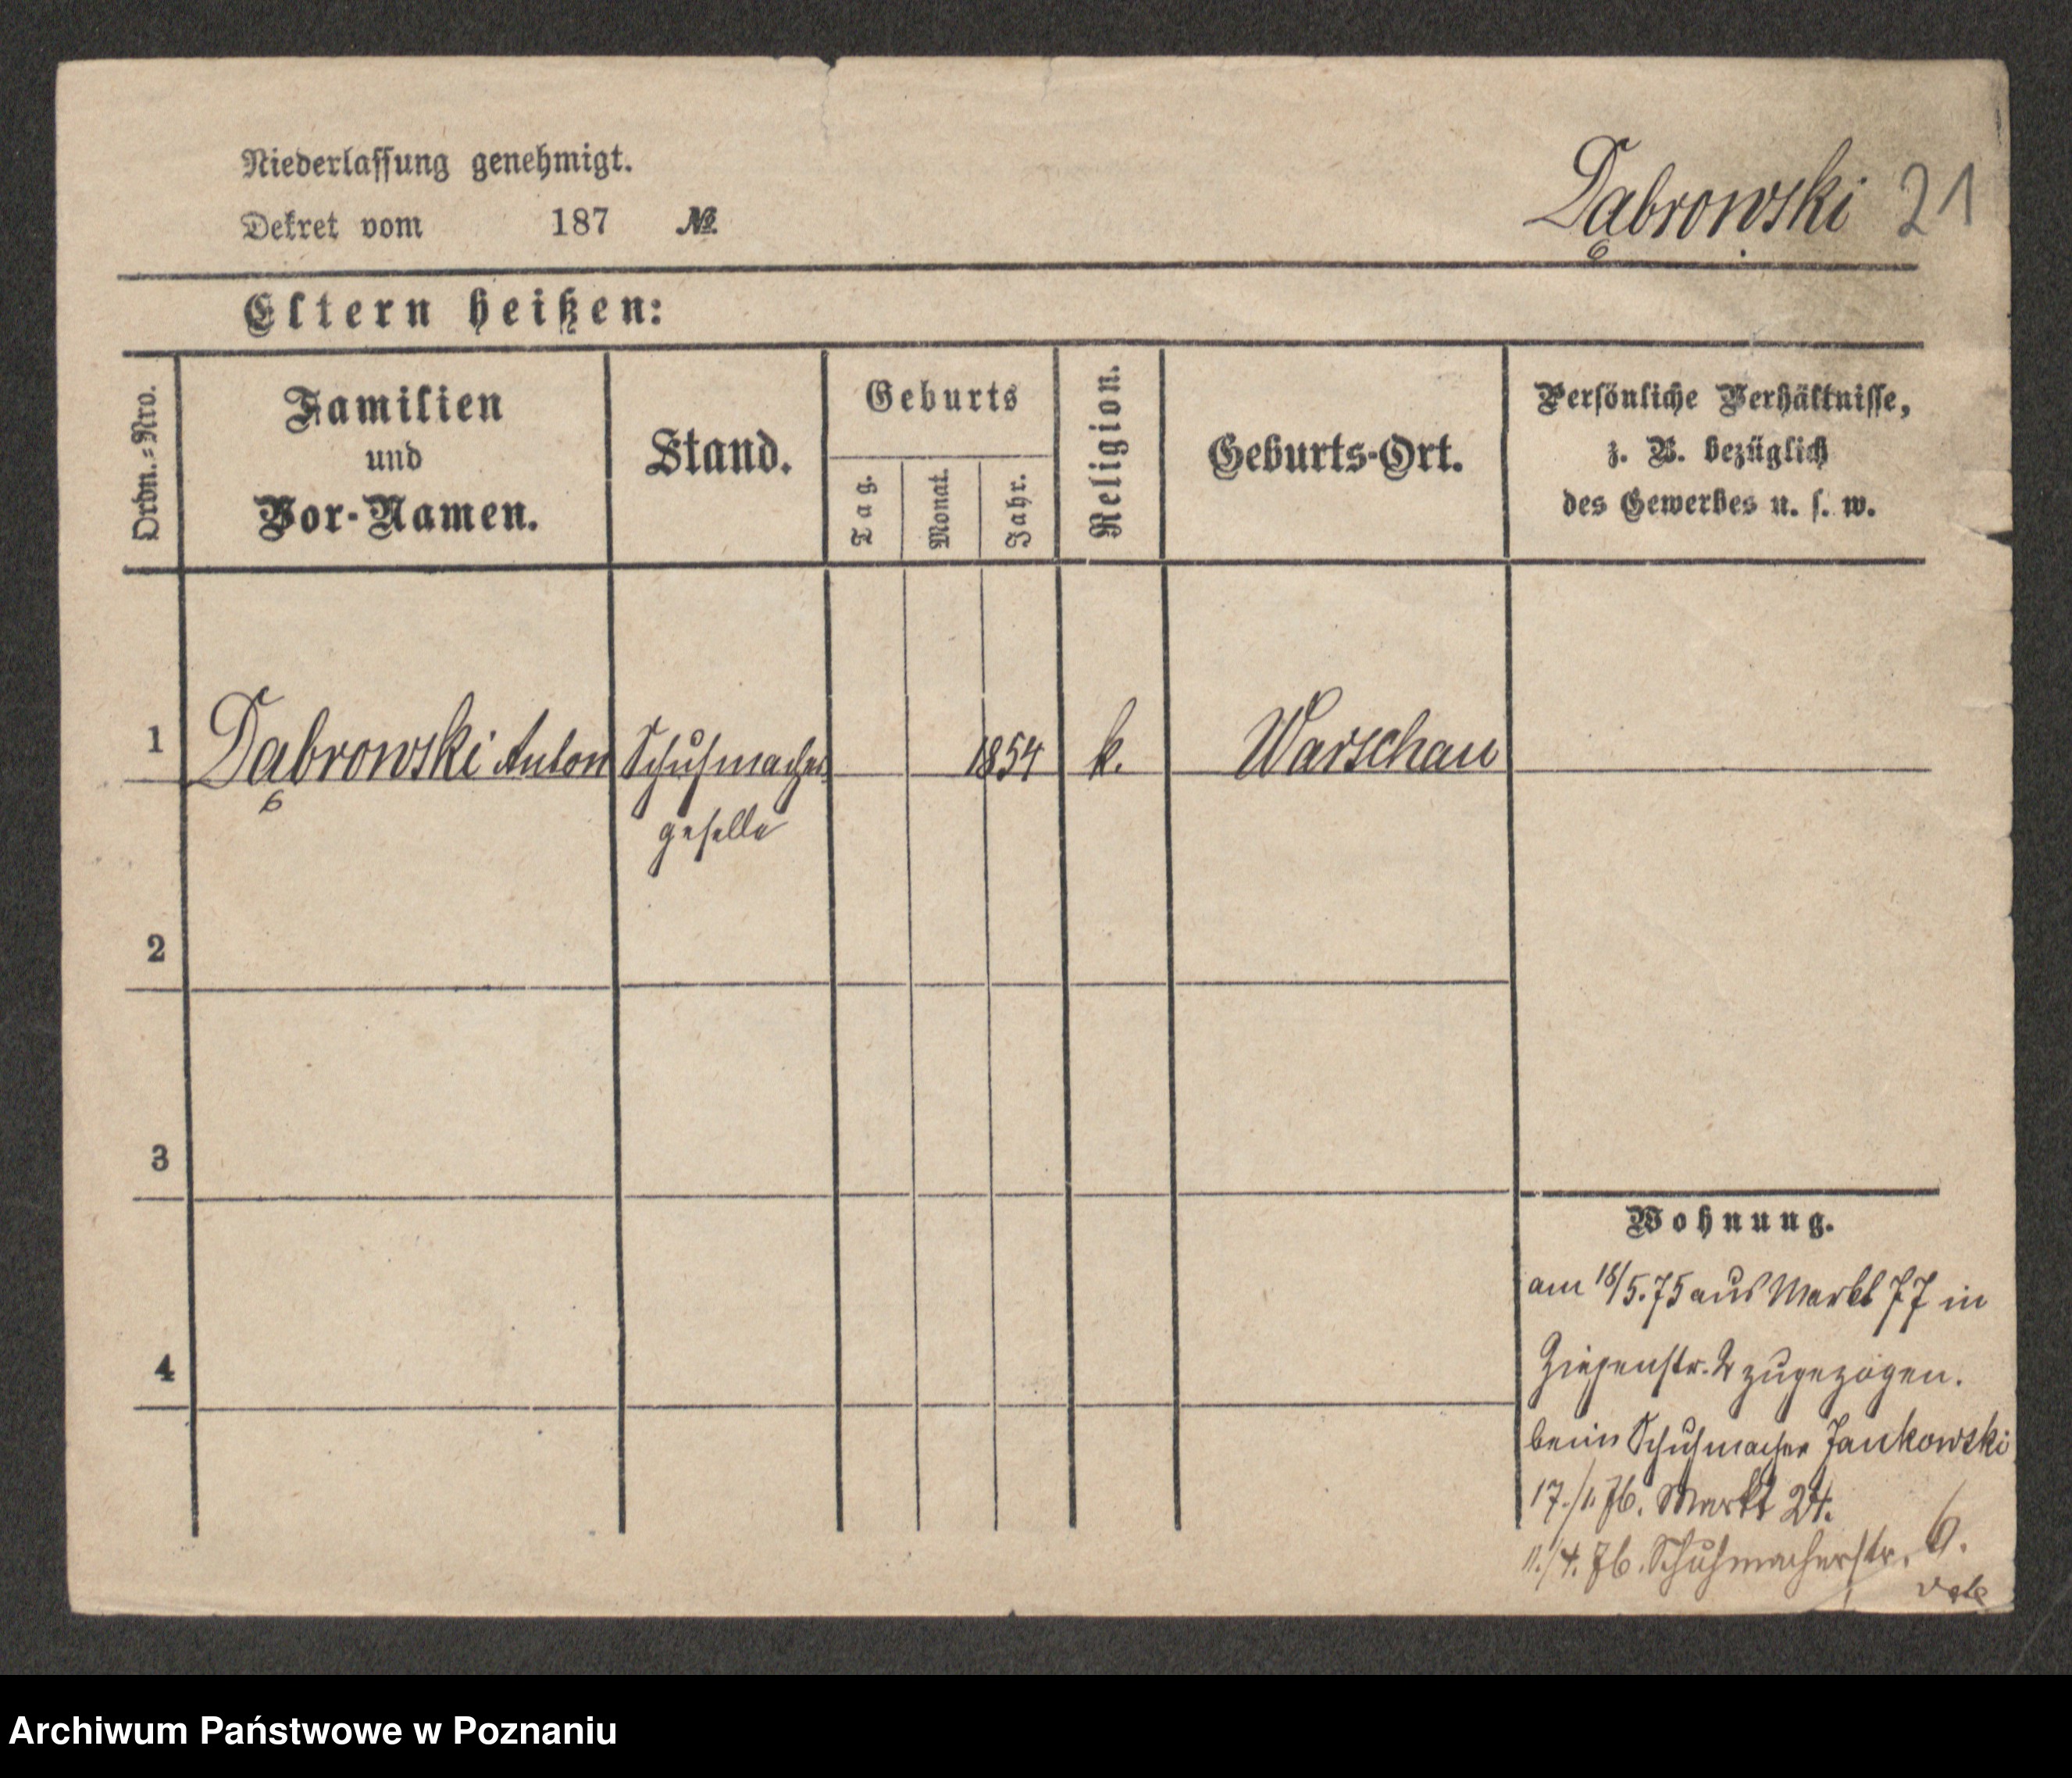 Niederlassung genehmigt.
Dekret vom 187 №
Dąbrowski 21
Eltern heißen:
Ordn.-Nro.
Familien
und
Vor-Namen.
Stand.
Geburts
Tag.
Monat.
Jahr.
Religion.
Geburts-Ort.
Persönliche Verhältnisse,
z. B. bezüglich
des Gewerbes u. s. w.
1 Dąbrowski Anton Schuhmacher 1854 k. Warschau
geselle
2
3
4
Wohnung.
am 18/5.75 aus Markt 77 in
Ziegenstr. 2 zugezogen.
beim Schuhmacher Jankowski
17./1.76. Markt 24.
11./4.76. Schuhmacherstr. 6.
Archiwum Państwowe w Poznaniu